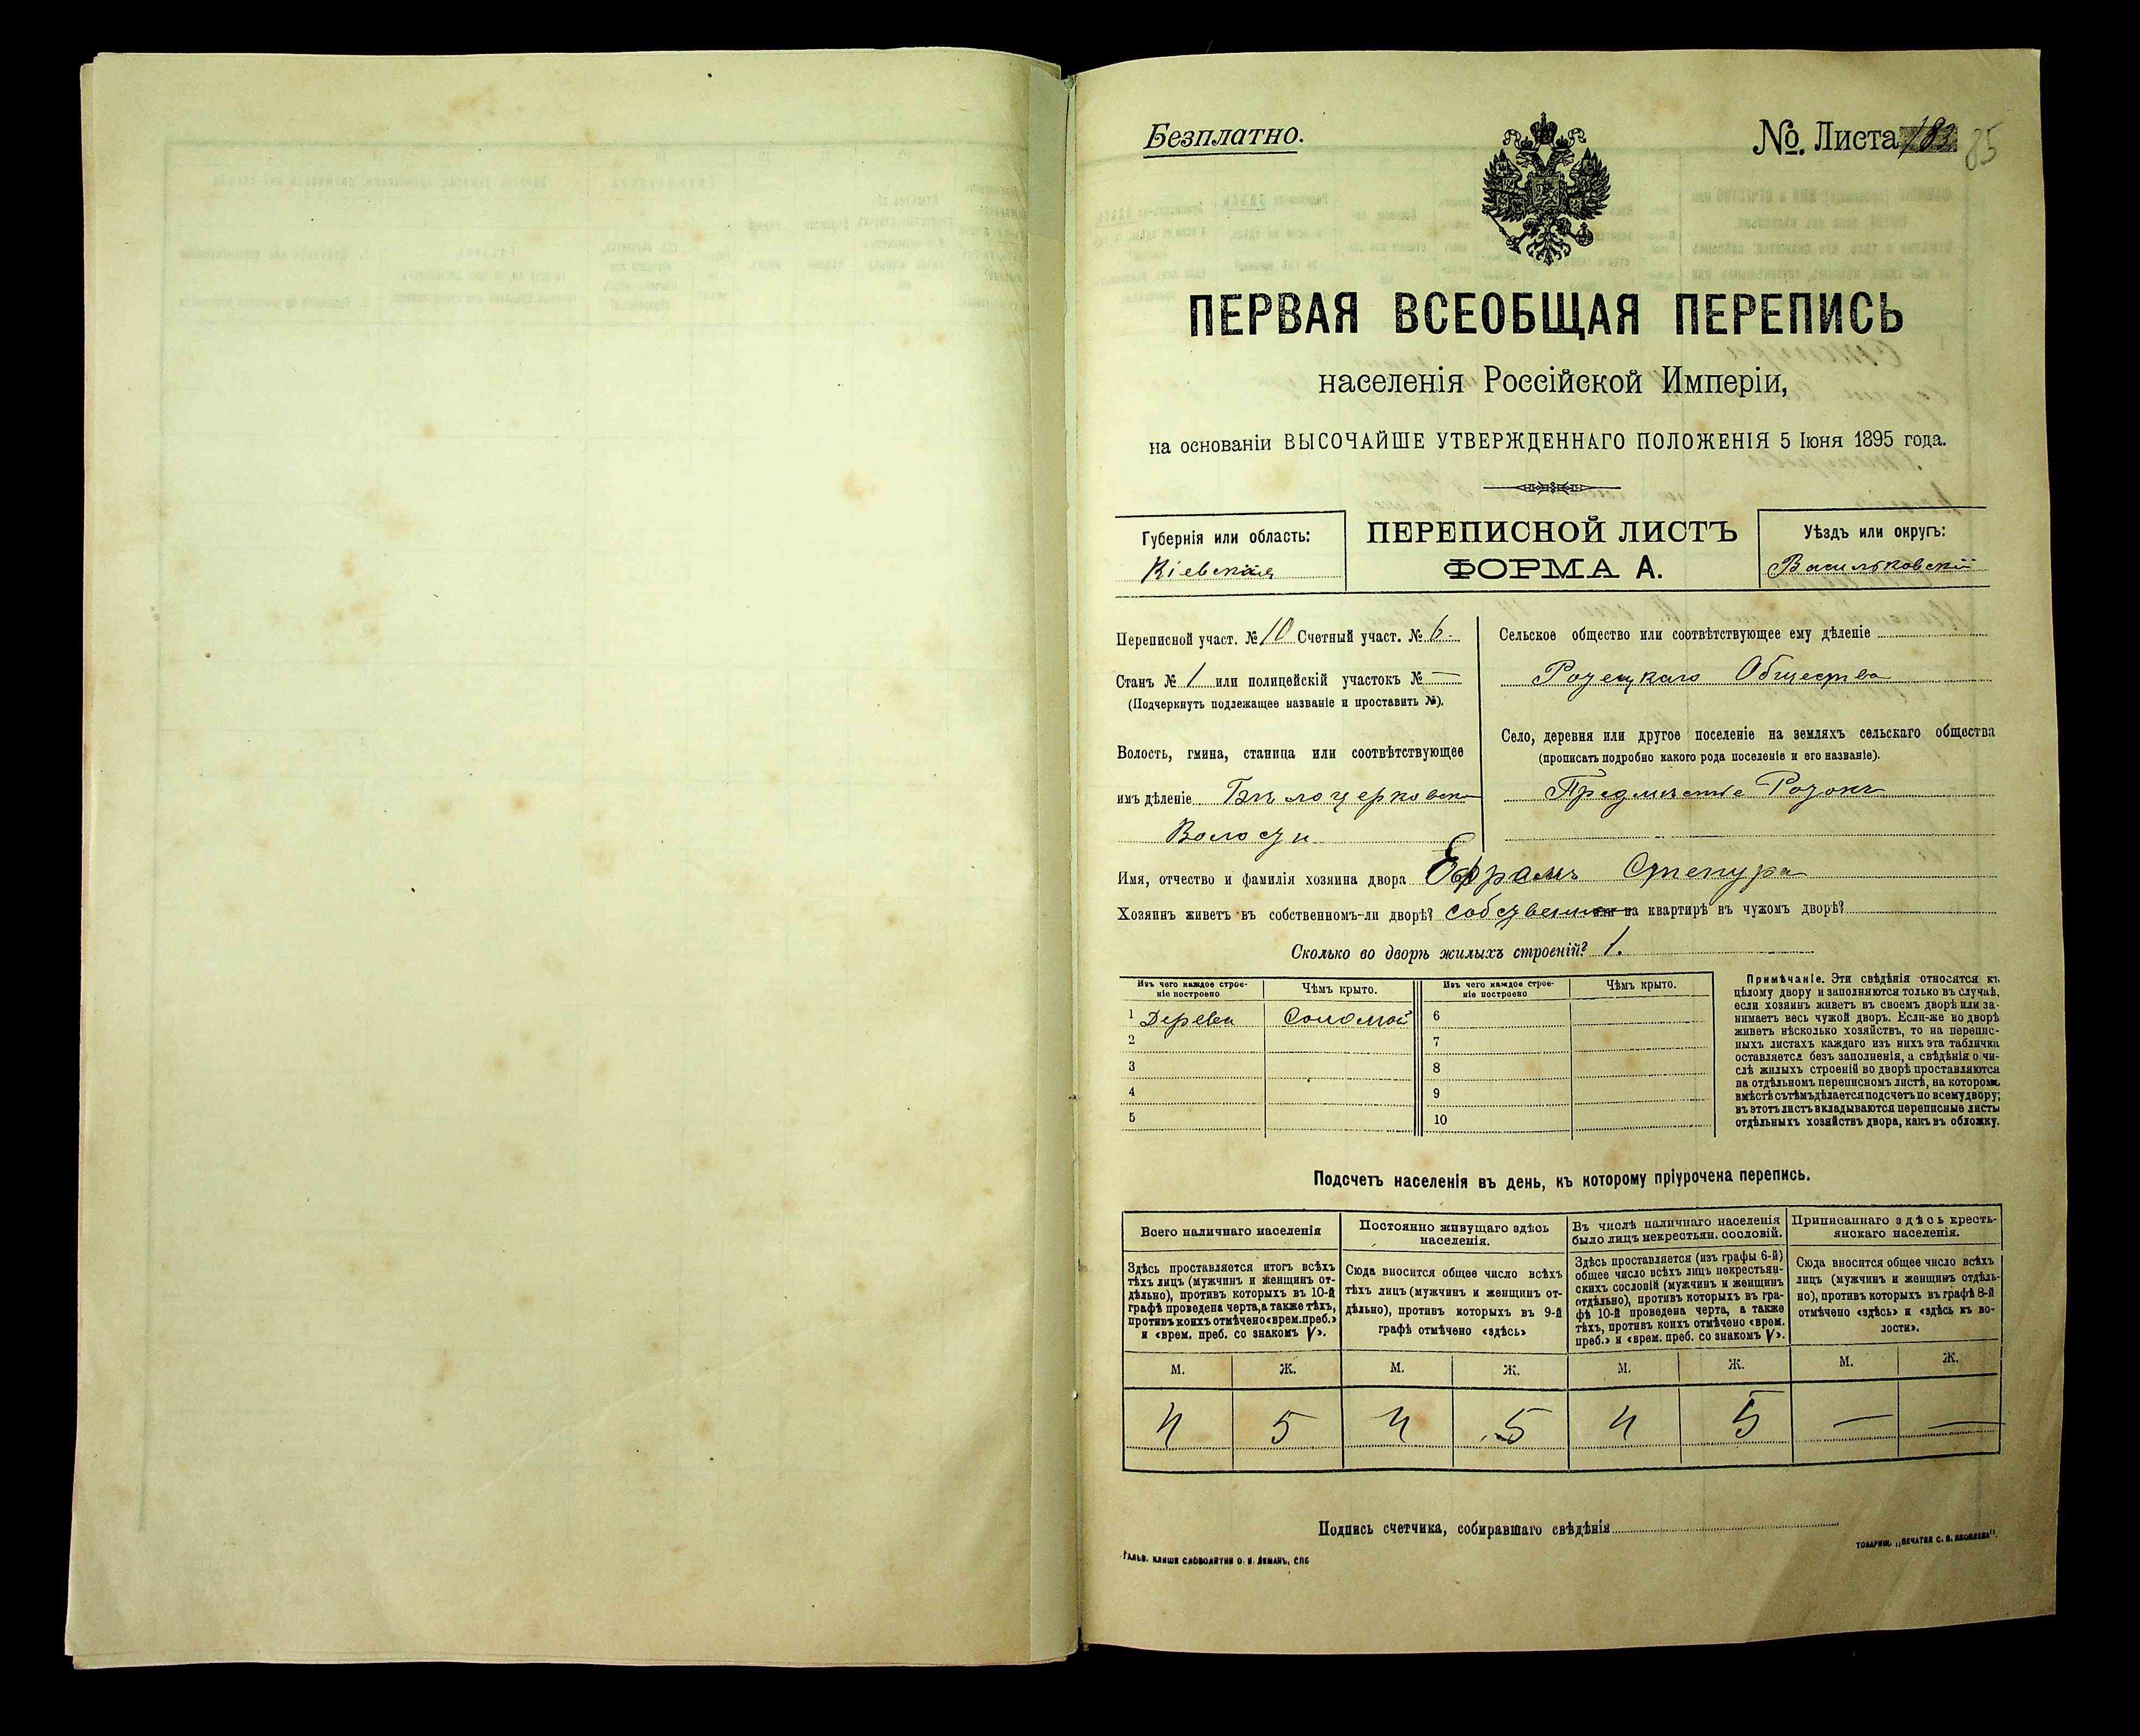 Безплатно.
№. Листа 85
ПЕРВАЯ ВСЕОБЩАЯ ПЕРЕПИСЬ
населенія Россійской Имперіи,
на основаніи ВЫСОЧАЙШЕ УТВЕРЖДЕННАГО ПОЛОЖЕНІЯ 5 Іюня 1895 года.
Губернія или область:
Кіевская
ПЕРЕПИСНОЙ ЛИСТЪ
ФОРМА А.
Уѣздъ или округъ:
Васильковскій
Переписной участ. № 10 Счетный участ. № 6.
Станъ № 1 или полицейскій участокъ № —
(Подчеркнуть подлежащее названіе и проставить №).
Волость, гмина, станица или соотвѣтствующее
имъ дѣленіе Бѣлоцерковск
Волости
Сельское общество или соотвѣтствующее ему дѣленіе
Общества
Село, деревня или другое поселеніе на земляхъ сельскаго общества
(прописать подробно какого рода поселеніе и его названіе).
Предмѣстіе
Имя, отчество и фамилія хозяина двора Ефрамъ Степура
Хозяинъ живетъ въ собственномъ-ли дворѣ? собствен или на квартирѣ въ чужомъ дворѣ?
Сколько во дворѣ жилыхъ строеній? 1.
Изъ чего каждое строе-
ніе построено
Чѣмъ крыто.
Изъ чего каждое строе-
ніе построено
Чѣмъ крыто.
1 Дерева Соломой 6
2 7
3 8
4 9
5 10
Примѣчаніе. Эти свѣдѣнія относятся къ
цѣлому двору и заполняются только въ случаѣ,
если хозяинъ живетъ въ своемъ дворѣ или за-
нимаетъ весь чужой дворъ. Если-же во дворѣ
живетъ нѣсколько хозяйствъ, то на перепис-
ныхъ листахъ каждаго изъ нихъ эта табличка
оставляется безъ заполненія, а свѣдѣнія о чи-
слѣ жилыхъ строеній во дворѣ проставляются
на отдѣльномъ переписномъ листѣ, на которомъ
вмѣстѣ съ тѣмъ дѣлается подсчетъ по всему двору;
въ этотъ листъ вкладываются переписные листы
отдѣльныхъ хозяйствъ двора, какъ въ обложку.
Подсчетъ населенія въ день, къ которому пріурочена перепись.
Всего наличнаго населенія
Здѣсь проставляется итогъ всѣхъ
тѣхъ лицъ (мужчинъ и женщинъ от-
дѣльно), противъ которыхъ въ 10-й
графѣ проведена черта, а также тѣхъ,
противъ коихъ отмѣчено «врем. преб.»
и «врем. преб. со знакомъ V».
Постоянно живущаго здѣсь
населенія.
Сюда вносится общее число всѣхъ
тѣхъ лицъ (мужчинъ и женщинъ от-
дѣльно), противъ которыхъ въ 9-й
графѣ отмѣчено «здѣсь»
Въ числѣ наличнаго населенія
было лицъ некрестьян. сословій.
Здѣсь проставляется (изъ графы 6-й)
общее число всѣхъ лицъ некрестьян-
скихъ сословій (мужчинъ и женщинъ
отдѣльно), противъ которыхъ въ гра-
фѣ 10-й проведена черта, а также
тѣхъ, противъ коихъ отмѣчено «врем.
преб.» и «врем. преб. со знакомъ V».
Приписаннаго здѣсь кресть-
янскаго населенія.
Сюда вносится общее число всѣхъ
лицъ (мужчинъ и женщинъ отдѣль-
но), противъ которыхъ въ графѣ 8-й
отмѣчено «здѣсь» и «здѣсь къ во-
лости».
М. Ж. М. Ж. М. Ж. М. Ж.
4 5 4 5 4 5 — —
Подпись счетчика, собиравшаго свѣдѣнія
ГАЛЬВ. КЛИШЕ СЛОВОЛИТНИ О. И. ЛЕМАНЪ, СПБ
ТОВАРИЩ. „ПЕЧАТНЯ С. П. ЯКОВЛЕВА".